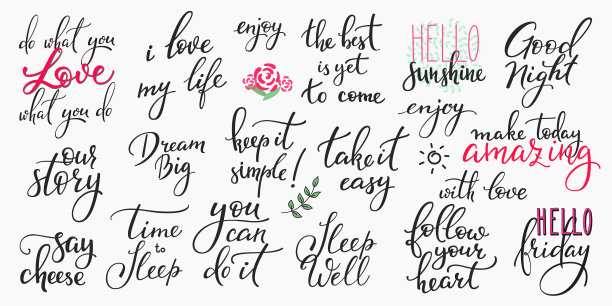 do what you
Love
what you do
i love
my life
enjoy
the best
is yet
to come
HELLO
sunshine
Good
Night
enjoy
our
story
Dream
Big
keep it
simple!
take it
easy
make today
amazing
with love
say
cheese
time
to
Sleep
you
can
do it
Sleep
Well
follow
your
heart
HELLO
friday